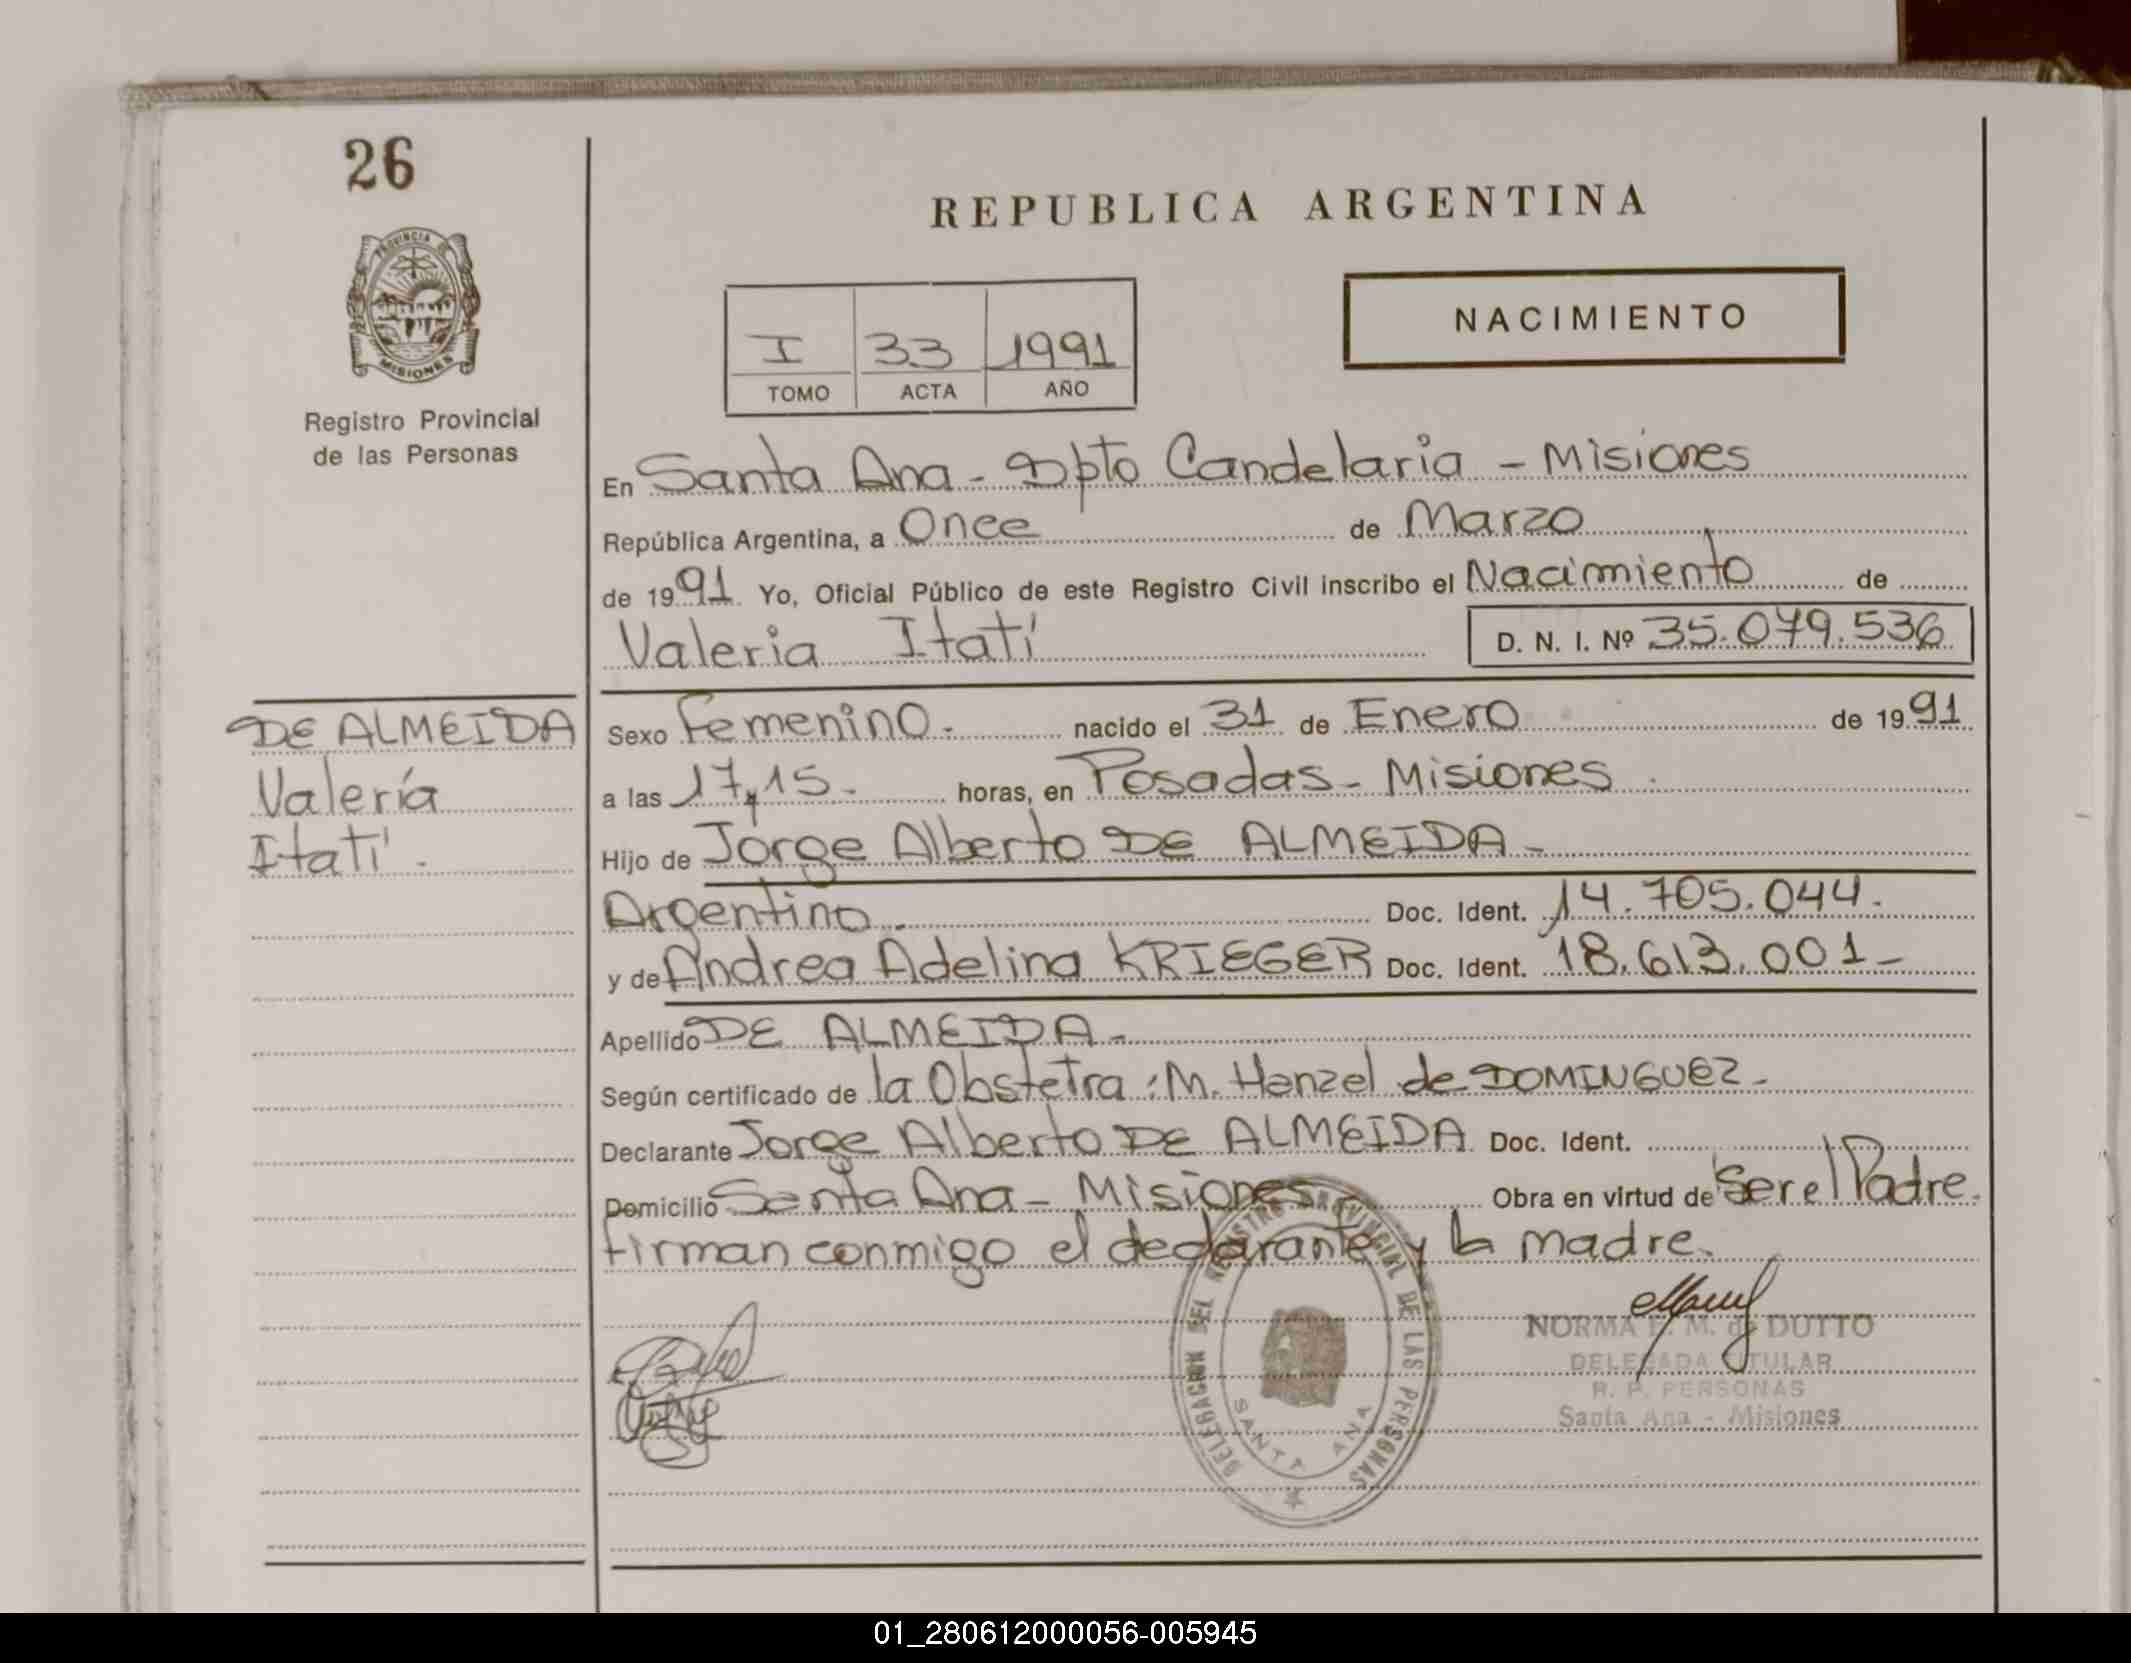 26
REPUBLICA ARGENTINA
PROVINCIA DE
MISIONES
NACIMIENTO
I 33 1991
TOMO ACTA AÑO
Registro Provincial
de las Personas
En Santa Ana - Dpto Candelaria - Misiones
República Argentina, a Once de Marzo
de 1991. Yo, Oficial Público de este Registro Civil inscribo el Nacimiento de
Valeria Itatí D. N. I. Nº 35.079.536
DE ALMEIDA
Valería
Itatí.
Sexo Femenino. nacido el 31 de Enero de 1991
a las 17,15. horas, en Posadas - Misiones.
Hijo de Jorge Alberto DE ALMEIDA -
Argentino. Doc. Ident. 14.705.044.
y de Andrea Adelina KRIEGER Doc. Ident. 18.613.001-
Apellido DE ALMEIDA -
Según certificado de la Obstetra: M. Henzel de DOMINGUEZ -
Declarante Jorge Alberto DE ALMEIDA Doc. Ident.
Domicilio Santa Ana - Misiones Obra en virtud de Ser el Padre.
Firman conmigo el declarante y la madre.
DELEGACION DEL REGISTRO PROVINCIAL DE LAS PERSONAS
SANTA ANA
NORMA E. M. de DUTTO
DELEGADA TITULAR
R. P. PERSONAS
Santa Ana - Misiones
01_280612000056-005945